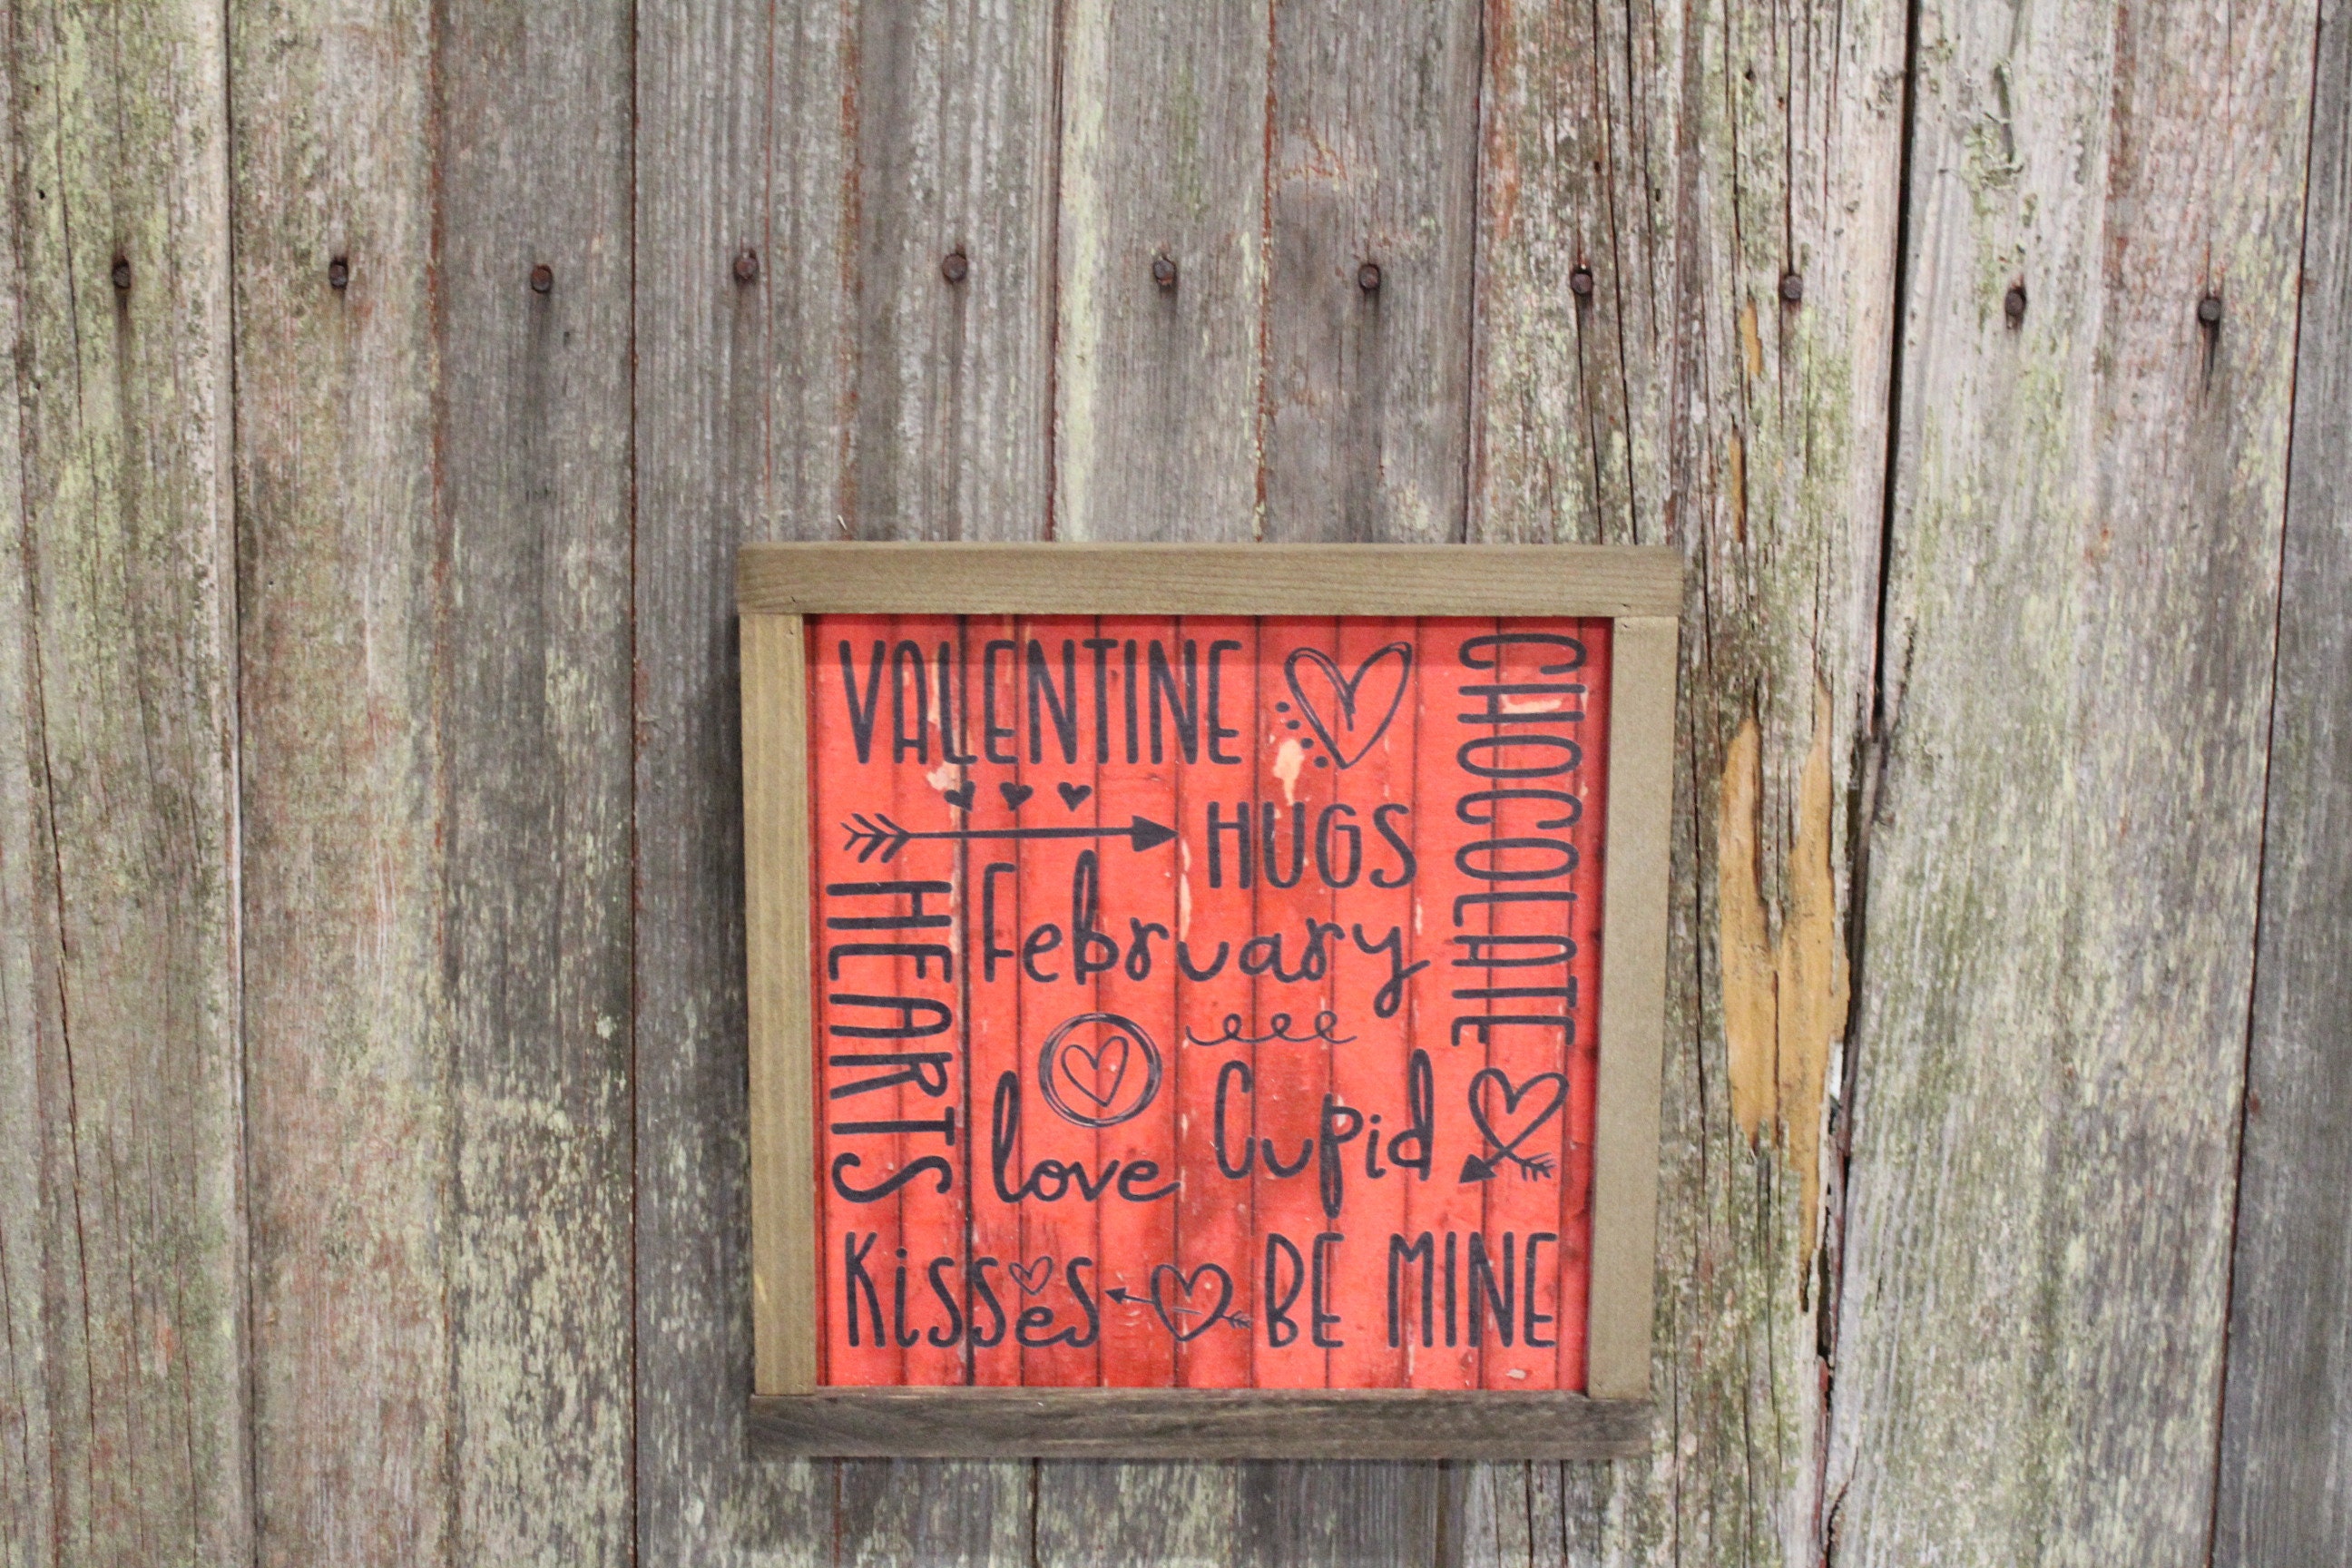 VALENTINE
CHOCOLATE
HUGS
February
HEARTS
love
Cupid
Kisses
BE MINE